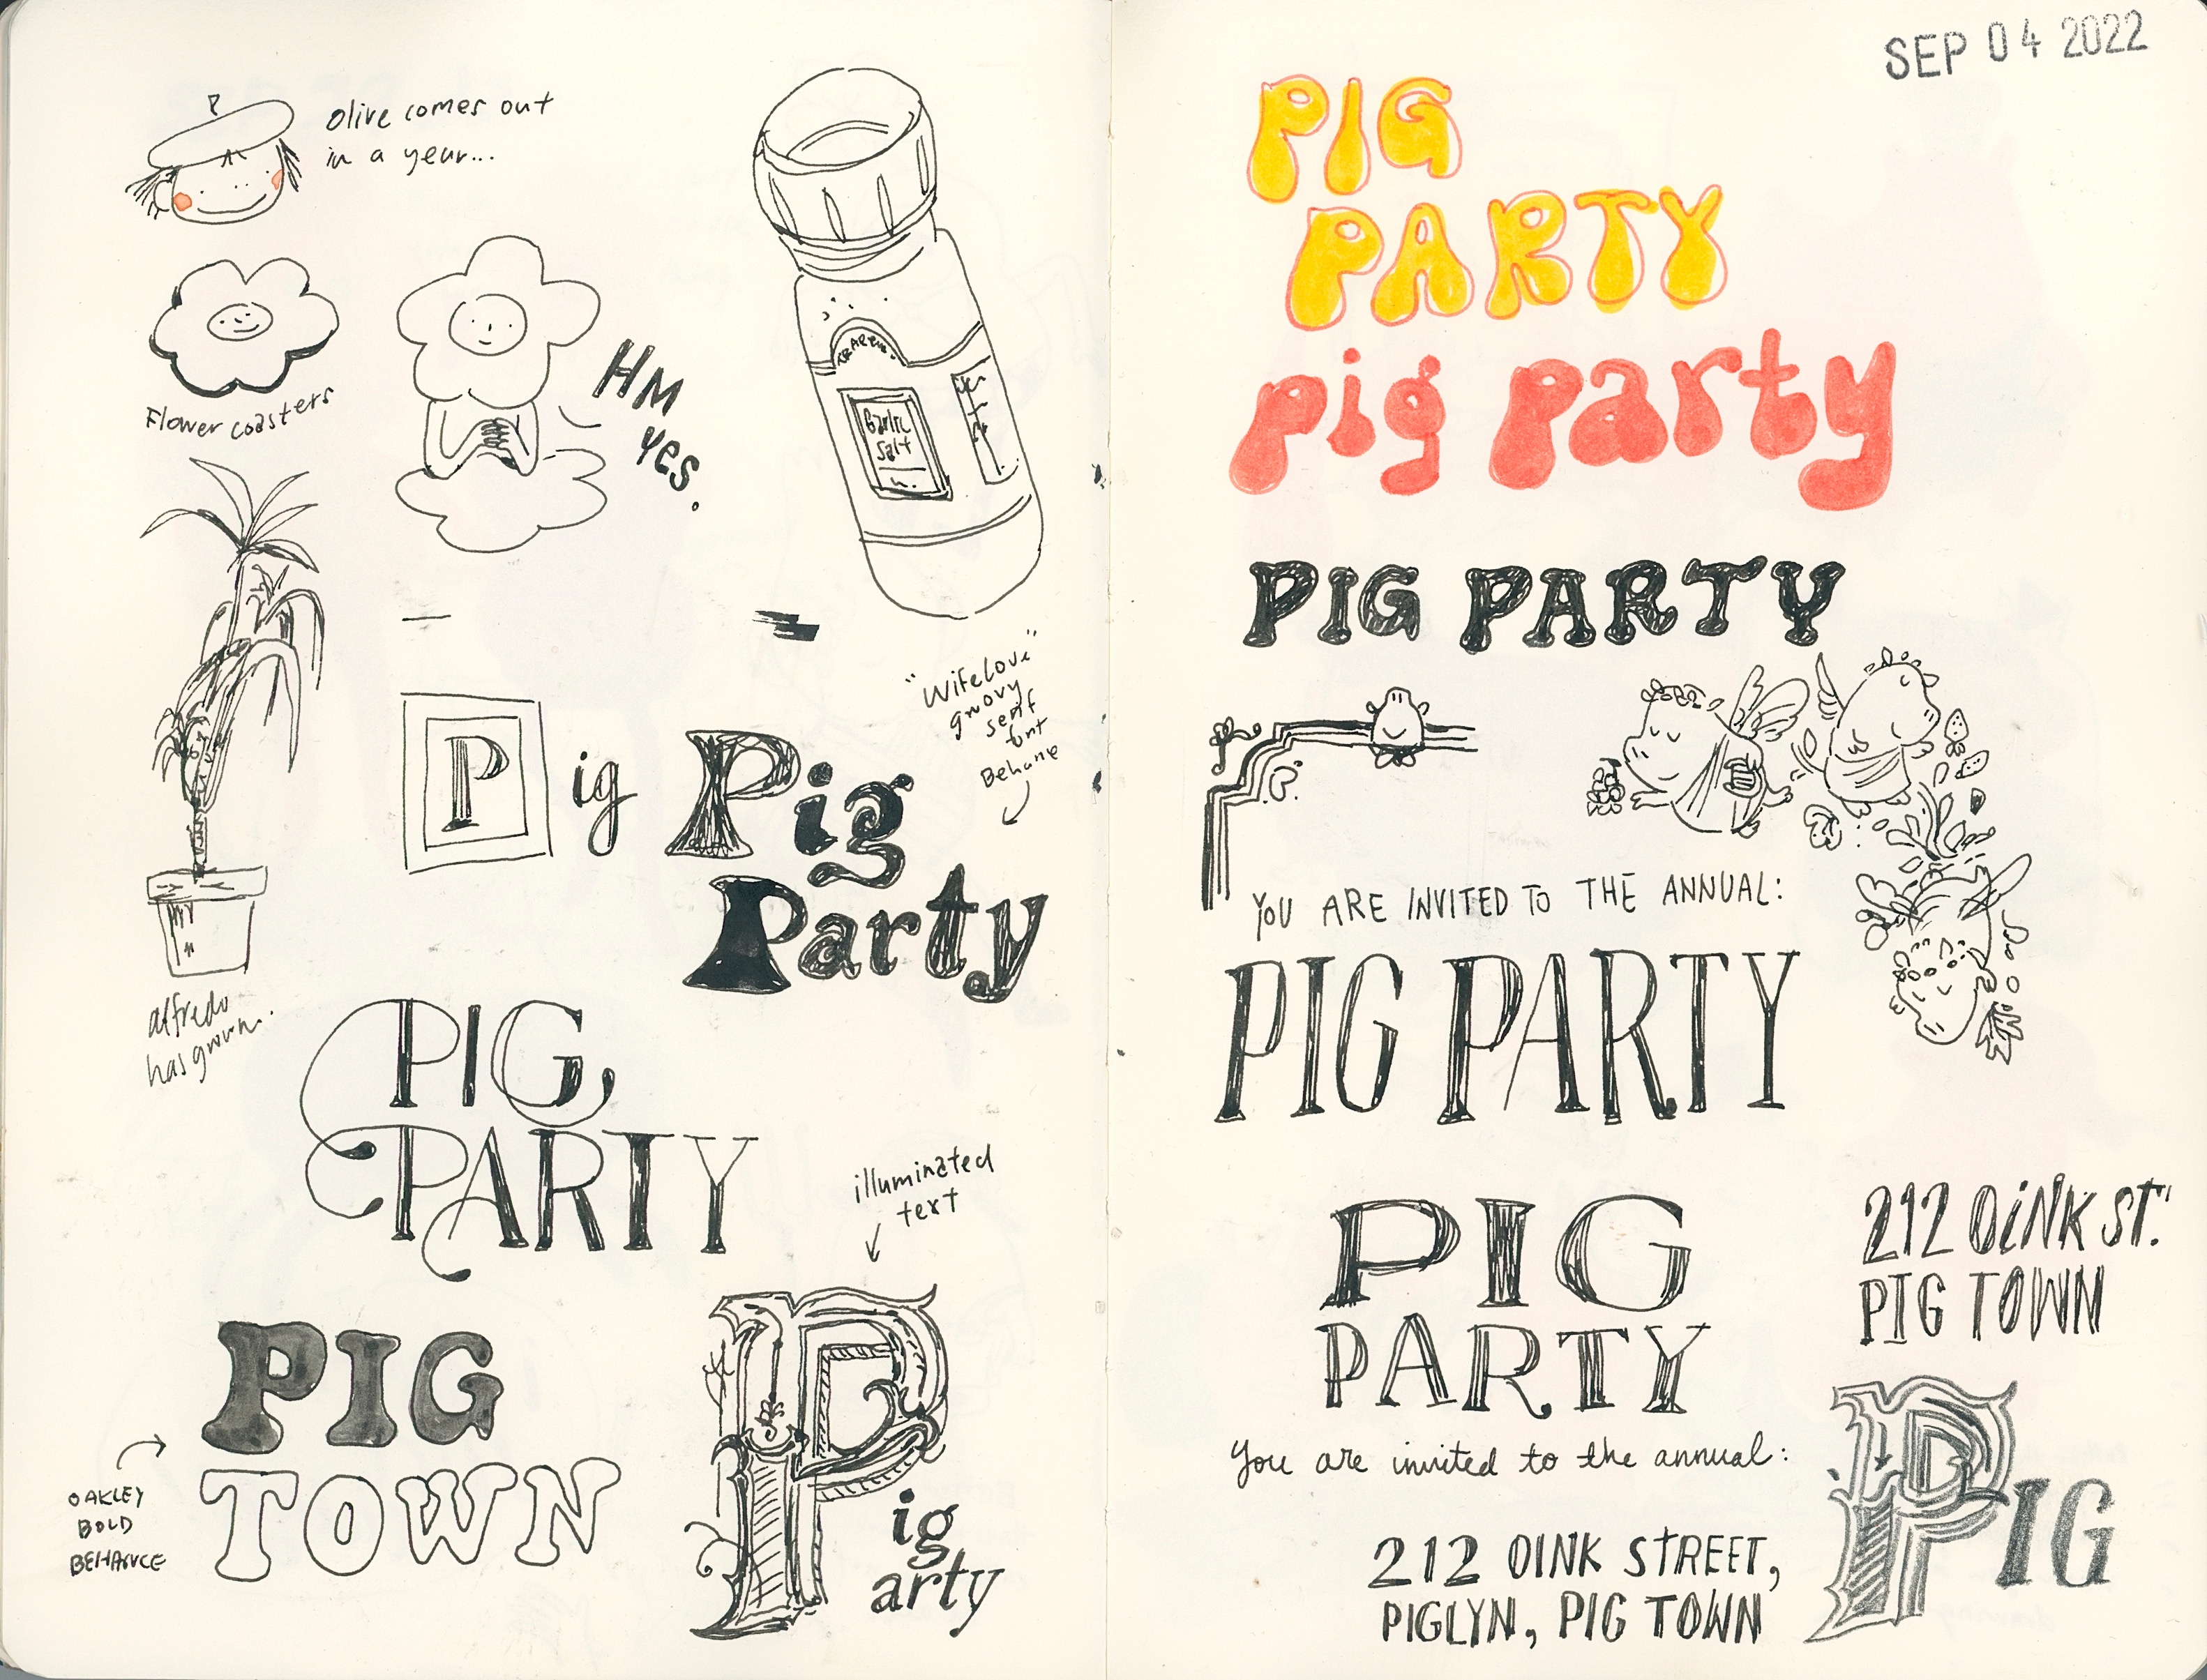 olive comes out
in a year...
Flower coasters
HM
yes.
Garlic
salt
alfredo
has grown.
Pig
"Wifelove"
groovy
serif
font
Behance
Pig
Party
PIG
PARTY
illuminated
text
PIG
TOWN
OAKLEY
BOLD
BEHANCE
P
ig
arty
SEP 04 2022
PIG
PARTY
pig party
PIG PARTY
YOU ARE INVITED TO THE ANNUAL:
PIG PARTY
PIG
PARTY
212 OINK ST.
PIG TOWN
You are invited to the annual:
212 OINK STREET,
PIGLYN, PIG TOWN
PIG